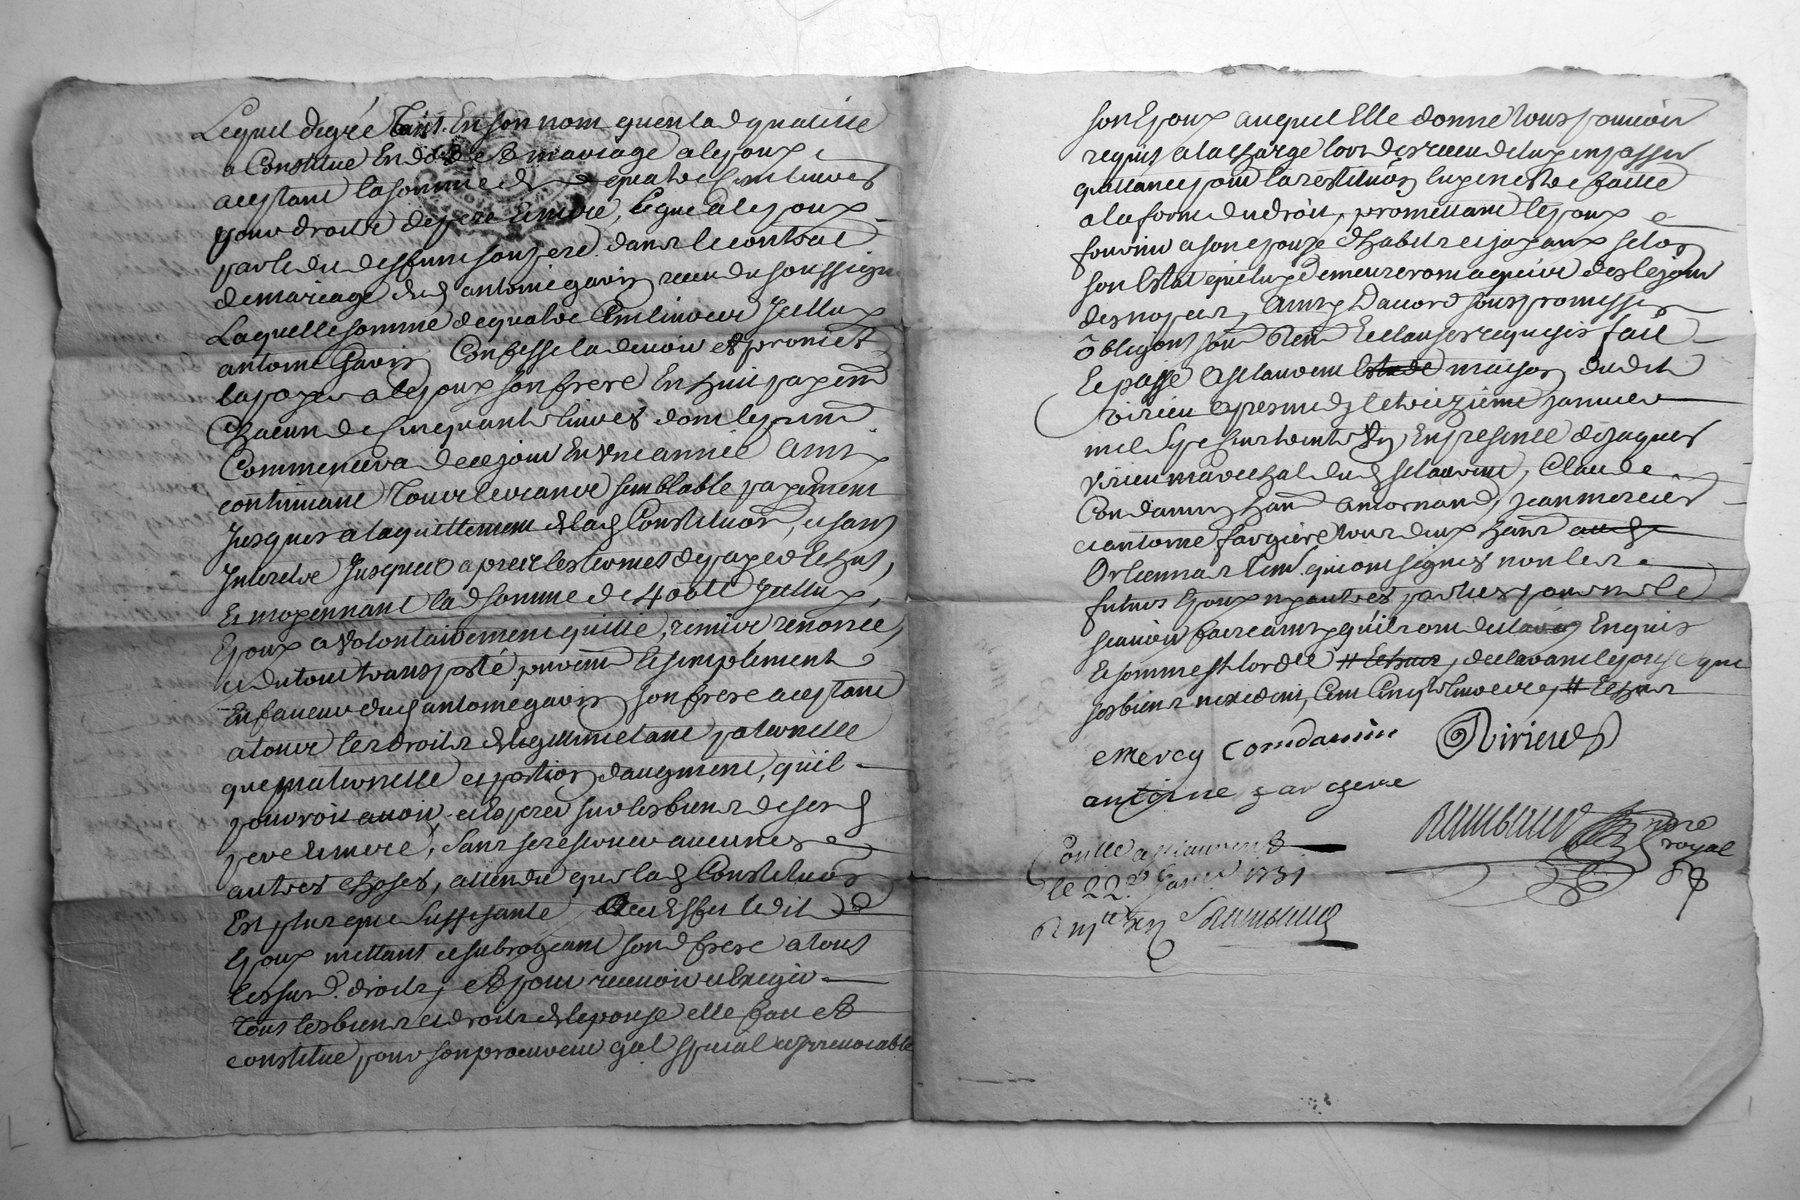 Lequel degré tant En son nom quen lad qualitté
a Constitué En dot de mariage a lepoux
aceptant la somme de quatre Cent livres
pour droits de pere Et mere, legué a lepoux
par led deffunt son pere dans le contrat
de mariage dud antoine gavin receu du soussigné
Laquelle somme de quatre Cent livres Jcelluy
antoine Gavin Confesse la devoir et promet
la payer a lepoux son frere En huit payem
Chacun de Cinquante livres dont le prem
Commencera de ce jour En Une année Ainsy
continuant tous les ans semblable payement
Jusques a laquittement de lad Constitution, et sans
Interets Jusques apres les termes de payes Echus,
Et moyennant lad somme de 400 ll Jcelluy
Epoux a Volontairement quitté, remis renoncé
et du tout transporté purem Et simplement
En faveur dud antoine gavin son frere aceptant
a tous les droits de legitime tant paternelle
que maternelle et portion daugment, quil
pourroit avoir et Esperer sur les biens de sesd
pere Et mere, sans se reserver aucunes
autres choses, attendu que lad Constitution
Est plus que suffisante, a Cet Effet ledit
Epoux mettant et subrogeant sond frere a tous
lessusd droits, et pour recevoir et Exiger
tous les biens et droits de lepouse elle fait et
constitue pour son procureur gñal special et jrrevocable
son Epoux auquel Elle donne tous pouvoir
requis a la charge lors des receu de luy en passer
quittances pour la restitution luy en estre faitte
a la forme du droit, promettant lepoux
fournir a son epouze dhabits et joyaux selon
son Estat qui luy demeureront aquis des le jour
des nopces, Ainsy Daccord sous promesses
obligons soum Renon Et clauses requises fait
Et passé a st laurent maison dudit
Virieu apres midy le treizieme Janvier
mil sept cent trente Un En presence de Jaques
Virieu marechal dud st laurent, Claude
Condamin hant a mornand, Jean mercier
et antoine fargiere tous deux hants
Orliennas tem qui ont signés non les
futurs Epoux ny autres parties pour ne le
scavoir faire ainsy quils ont dit Enquis
Et sommés st lordce, declarant lepouse que
ses biens nexedent, Cent Cinqte livres
eMercy Condamin Virieu
antoine fargere
Raimbaud nore
royal
Conllé a st laurent
le 22e Janvr 1731
Raimbaud